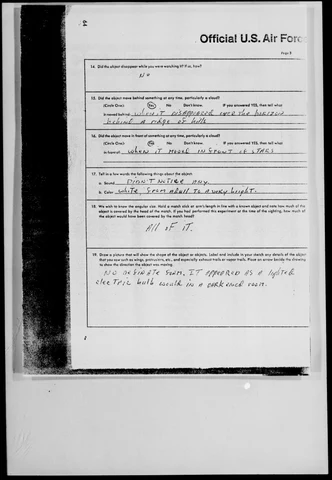 Official U.S. Air Forc
Page 5
14. Did the object disappear while you were watching it? If so, how?
NO
15. Did the object move behind something at any time, particularly a cloud?
(Circle One): Yes No Don't know. If you answered YES, then tell what
it moved behind: WHEN IT DISAPPEARED INTO THE HORIZON
BEHIND A RIDGE OF HILLS
16. Did the object move in front of something at any time, particularly a cloud?
(Circle One): Yes No Don't know. If you answered YES, then tell what
in front of: WHEN IT MOVED IN FRONT OF STARS
17. Tell in a few words the following things about the object:
a. Sound DIDN'T NOTICE ANY.
b. Color white from a dull to a very bright.
18. We wish to know the angular size. Hold a match stick at arm's length in line with a known object and note how much of the
object is covered by the head of the match. If you had performed this experiment at the time of the sighting, how much of
the object would have been covered by the match head?
All of it.
19. Draw a picture that will show the shape of the object or objects. Label and include in your sketch any details of the object
that you saw such as wings, protrusions, etc., and especially exhaust trails or vapor trails. Place an arrow beside the drawing
to show the direction the object was moving.
NO definate form. IT appeared as a lighted
electric bulb would in a darkened room.